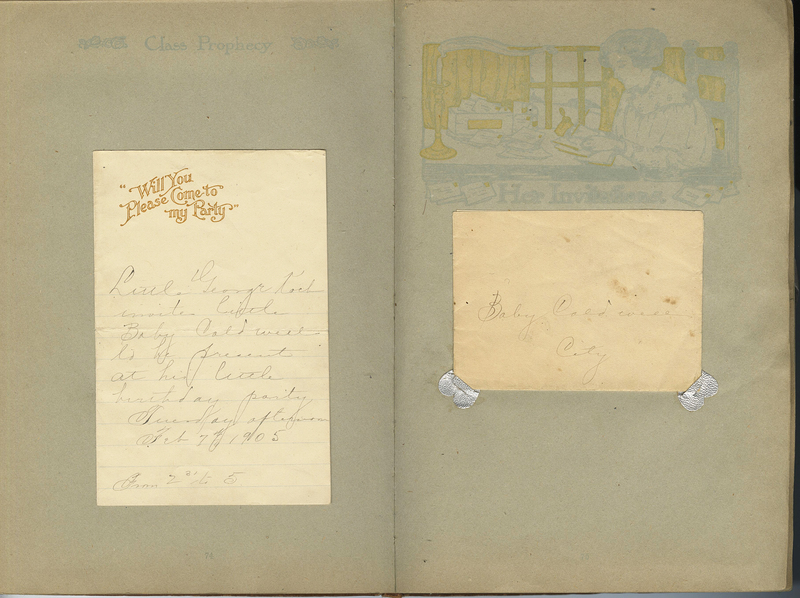 Class Prophecy
"Will You
Please Come to
my Party"
Little George Koch
invites little
Baby Caldwell
to be present
at his little
birthday party
Tuesday afternoon
Feb 7th 1905
From 2 to 5
Her Invitations
Baby Caldwell
City